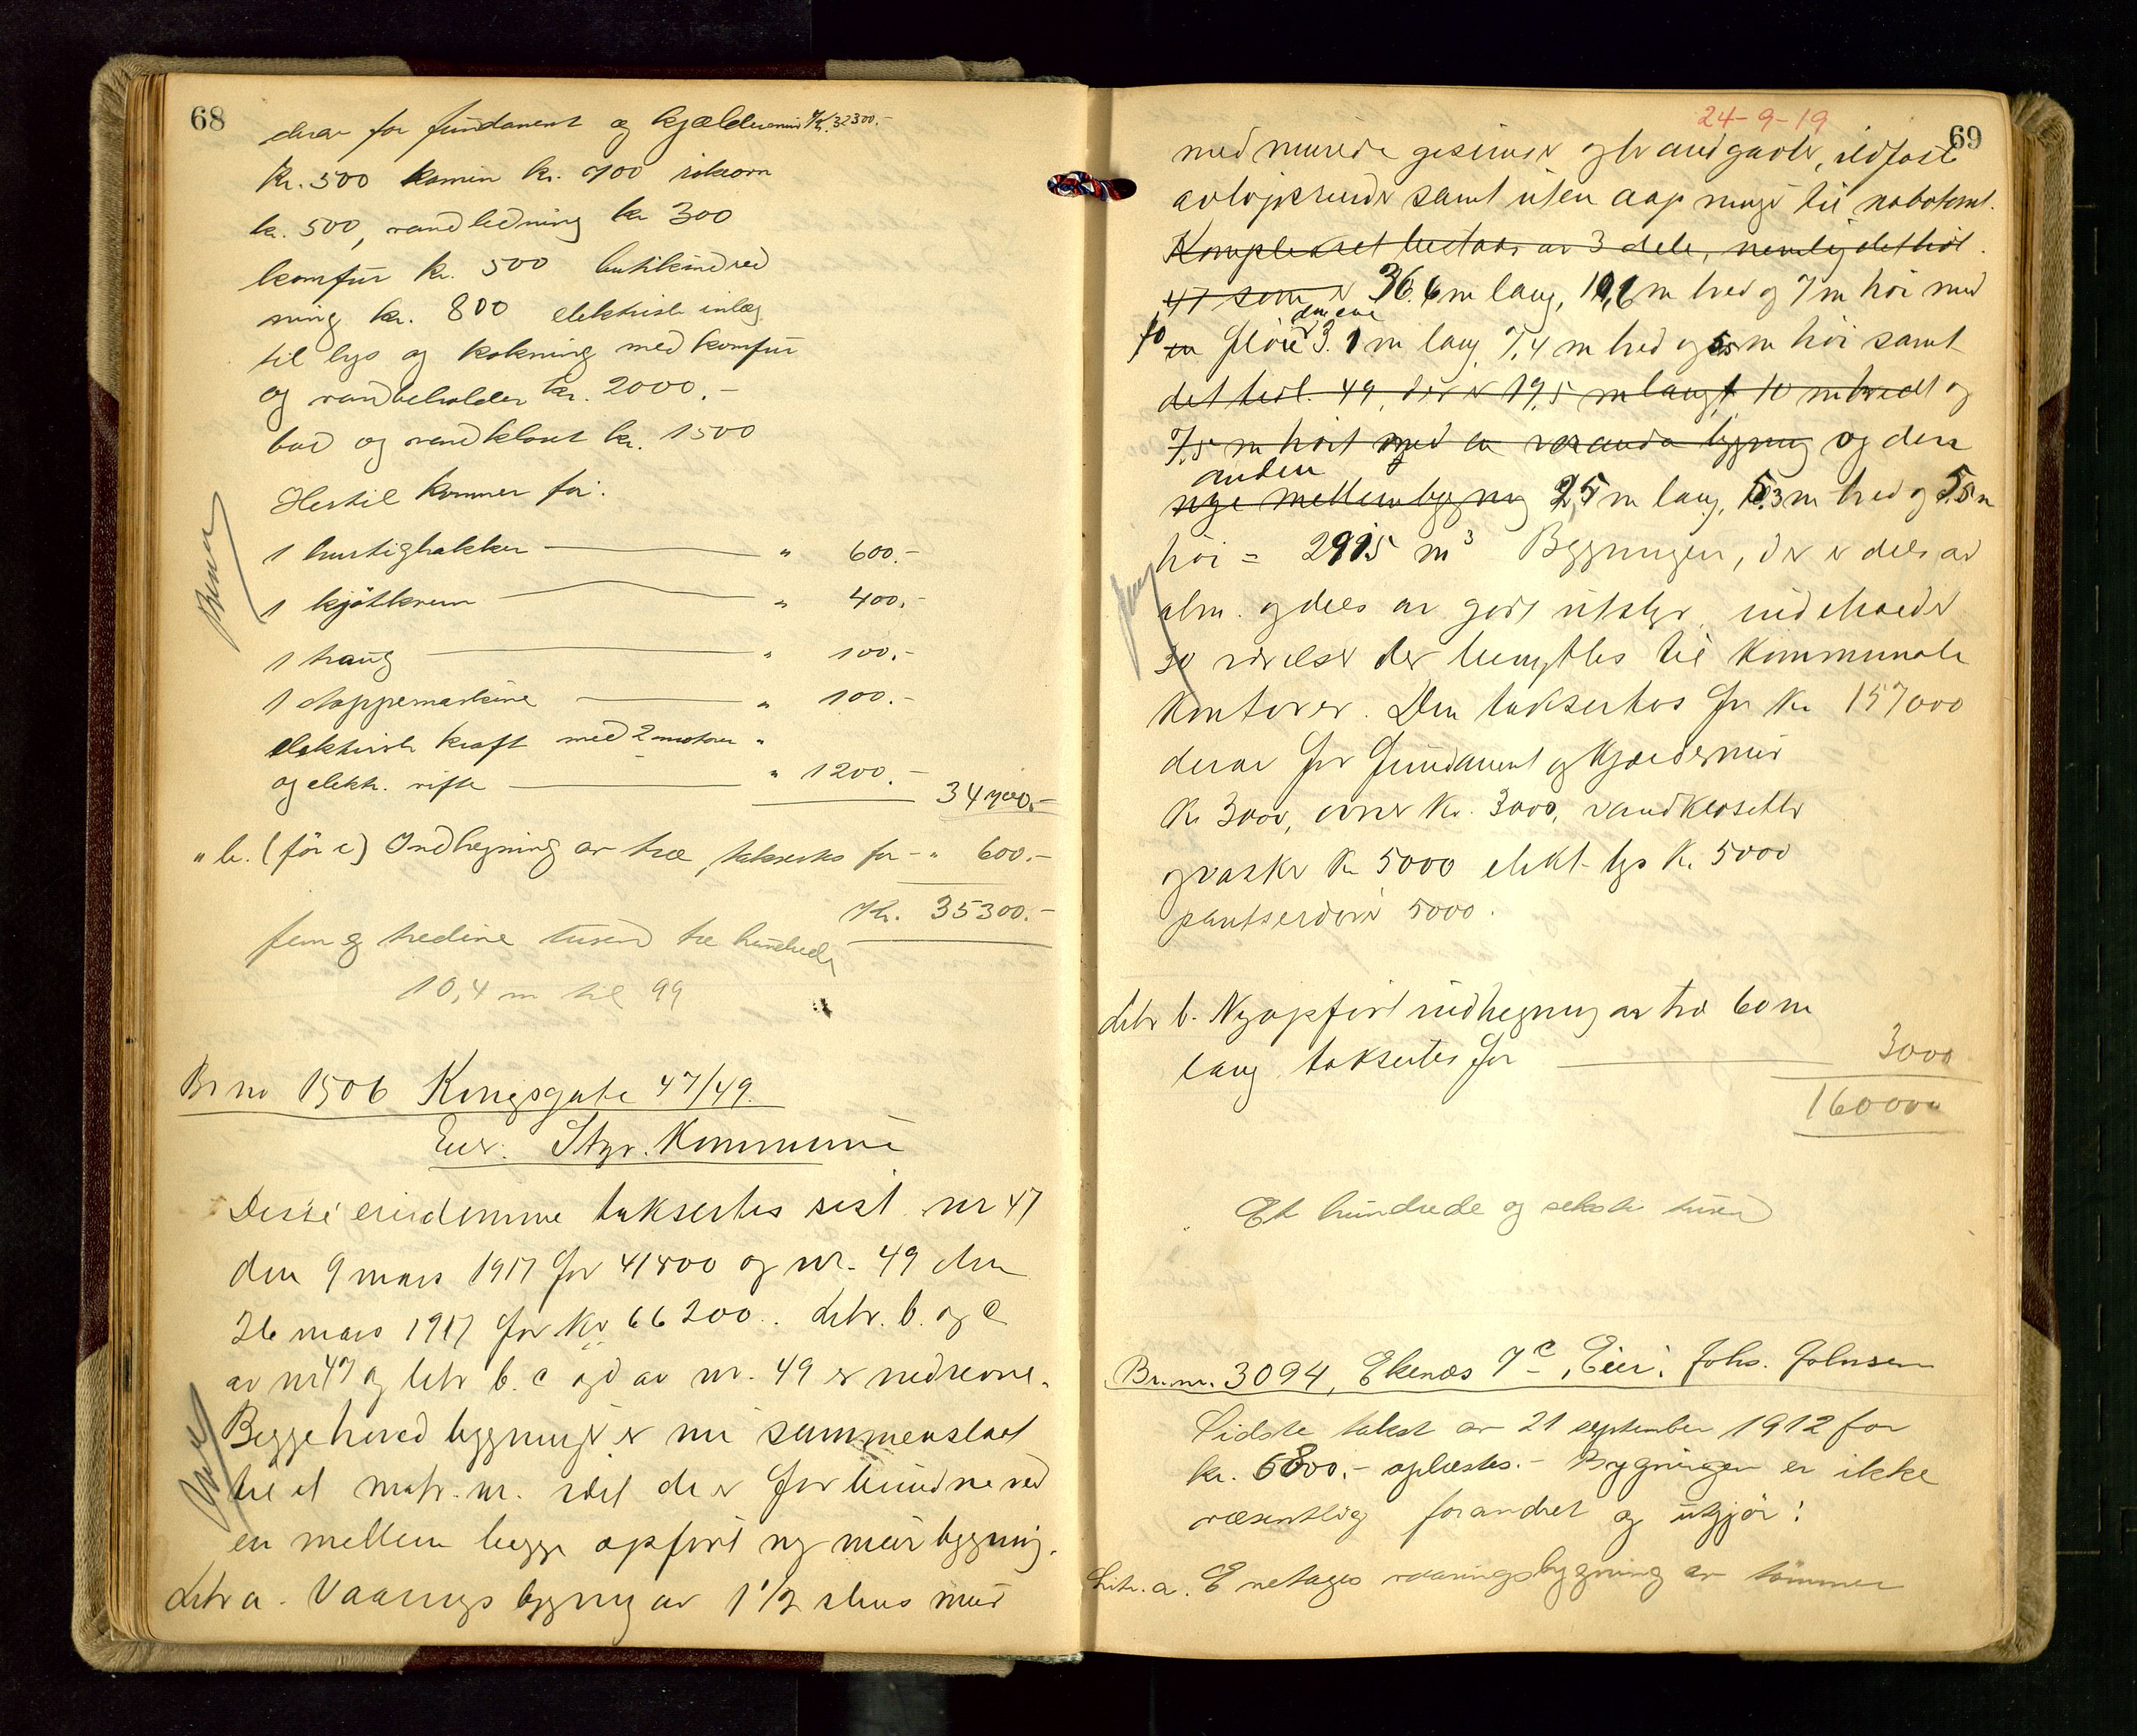 68
derav for fundament og kjældermur Kr. 32300.-
Kr. 500 kamin kr. 700 rökeovn
kr. 500, vandledning kr 300
komfur kr. 500 butikindred
ning kr. 800 elektrisk inlæg
til lys og kokning med komfur
og vandbeholder kr. 2000.-
bad og vandkloset kr. 1500
Hertil kommer for:
1 hurtighakker " 600.-
1 kjötkvern " 400.-
1 " 100.-
1 stoppemaskine " 100.-
elektrisk kraft med 2 motorer "
og elektr. vifte " 1200.- 34700.-
" b. (för c) Indhegning av træ takseres for - " 600.-
Kr. 35300.-
fem og tredive tusen tre hundrede
10,4 m til 99
Br no 1506 Kongsgate 47/49.
Eier: Stgr. Kommune
Disse eiendomme taksertes sist nr 47
den 9 mars 1917 for 41800 og nr. 49 den
26 mars 1917 for Kr 66200.. Litr. b. og c
av nr 47 og litr b. c og d av nr. 49 er nedrevne.
Begge hovedbygninger er nu sammenslaat
til et matr. nr. idet de er forbundne ved
en mellem begge opfört ny murbygning.
Litr a. Vaaningsbygning av 1 1/2 stens mur
24-9-19
69
med murede gesimser og brandgavle, ildfaste
avlöpsrender samt uten aapninger til nabotomt.
Komplekset bestaar av 3 dele, nemlig det hist.
47 som er 36.6 m lang, 10,6 m bred og 7 m höi med
to en flöie den ene er 3.1 m lang 7,4 m bred og 5,5 m höi samt
det hist. 49, der er 19,5 m langt 10 m bredt og
7,5 m höit med en veranda bygning og den
anden
nye mellembygning 2,5 m lang, 5.3 m bred og 5.5 m
höi = 2915 m³ Bygningen, der er dels av
alm. og dels av godt utstyr, indeholder
30 værelser der benyttes til Kommunale
Kontorer. Den taksertes for Kr 157000
derav for fundament og Kjældermur
Kr 3000, ovner Kr. 3000, vandklosetter
og vaske Kr 5000 elekt. lys Kr. 5000
pantserdörer 5000.
Litr b. Nyopfört indhegning av træ 60 m
lang taksertes for 3000
160000
Et hundrede og seksti tusen
Br. nr. 3094, Ekenæs 7c, Eier: Johs. Johnsen
Sidste takst av 21 september 1912 for
kr. 6800.- oplæstes.- Bygningen er ikke
væsentlig forandret og utgjör:
Litr. a. Enetages vaaningsbygning av tömmer